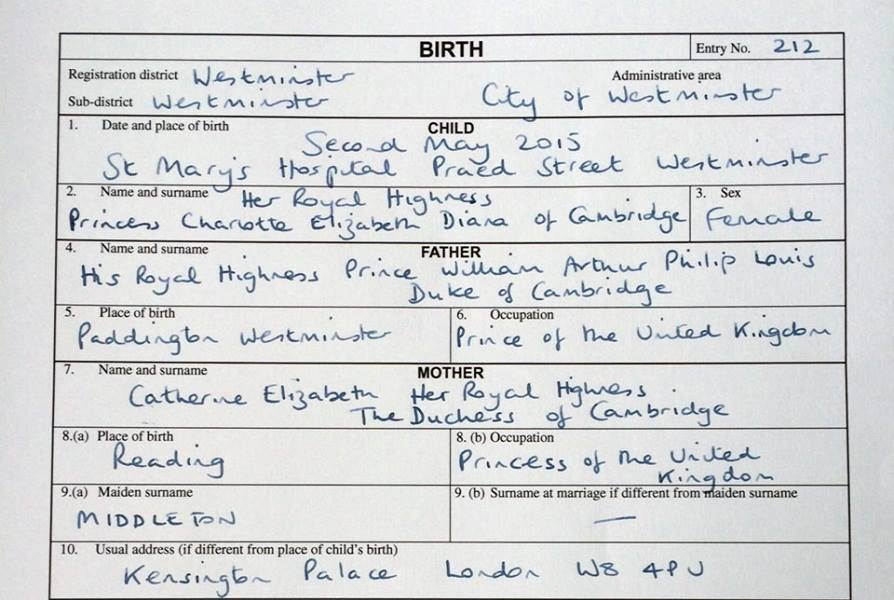 BIRTH Entry No. 212
Registration district Westminster Administrative area
Sub-district Westminster City of Westminster
1. Date and place of birth CHILD
Second May 2015
St Mary's Hospital Praed Street Westminster
2. Name and surname Her Royal Highness 3. Sex
Princess Charlotte Elizabeth Diana of Cambridge Female
4. Name and surname FATHER
His Royal Highness Prince William Arthur Philip Louis
Duke of Cambridge
5. Place of birth 6. Occupation
Paddington Westminster Prince of the United Kingdom
7. Name and surname MOTHER
Catherine Elizabeth Her Royal Highness
The Duchess of Cambridge
8.(a) Place of birth 8. (b) Occupation
Reading Princess of the United
Kingdom
9.(a) Maiden surname 9. (b) Surname at marriage if different from maiden surname
MIDDLETON —
10. Usual address (if different from place of child's birth)
Kensington Palace London W8 4PU